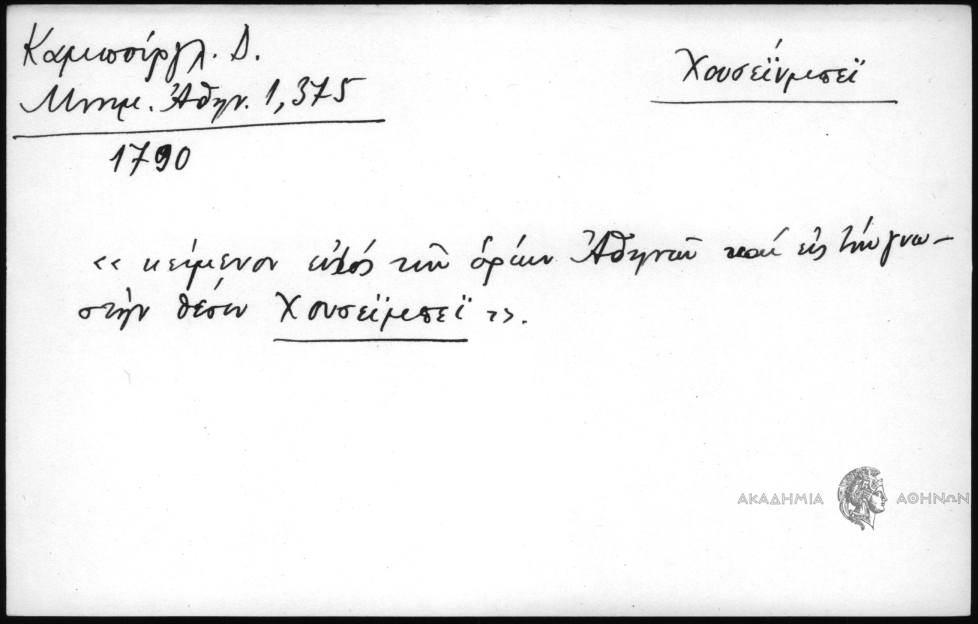 Καμπούργλ. Δ.
Μνημ. Ἀθην. 1,375
1790
Χουσεΐνμπεϊ
<< κείμενον ἐντός τῶν ὁρίων Ἀθηνῶν καί εἰς τήν γνω-
στήν θέσιν Χουσεΐμπεϊ >>.
ΑΚΑΔΗΜΙΑ ΑΘΗΝΩΝ